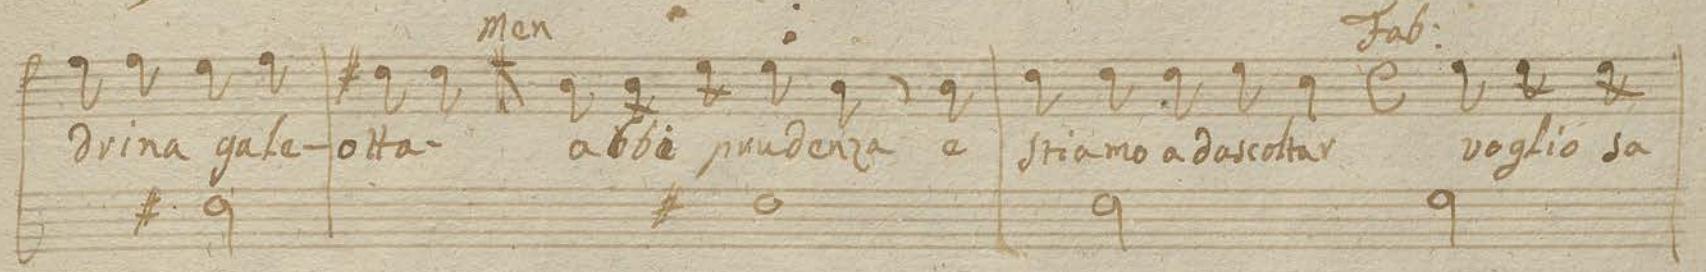 Men Fab:
drina gale-otta- abbi prudenza e stiamo adascoltar voglio sa